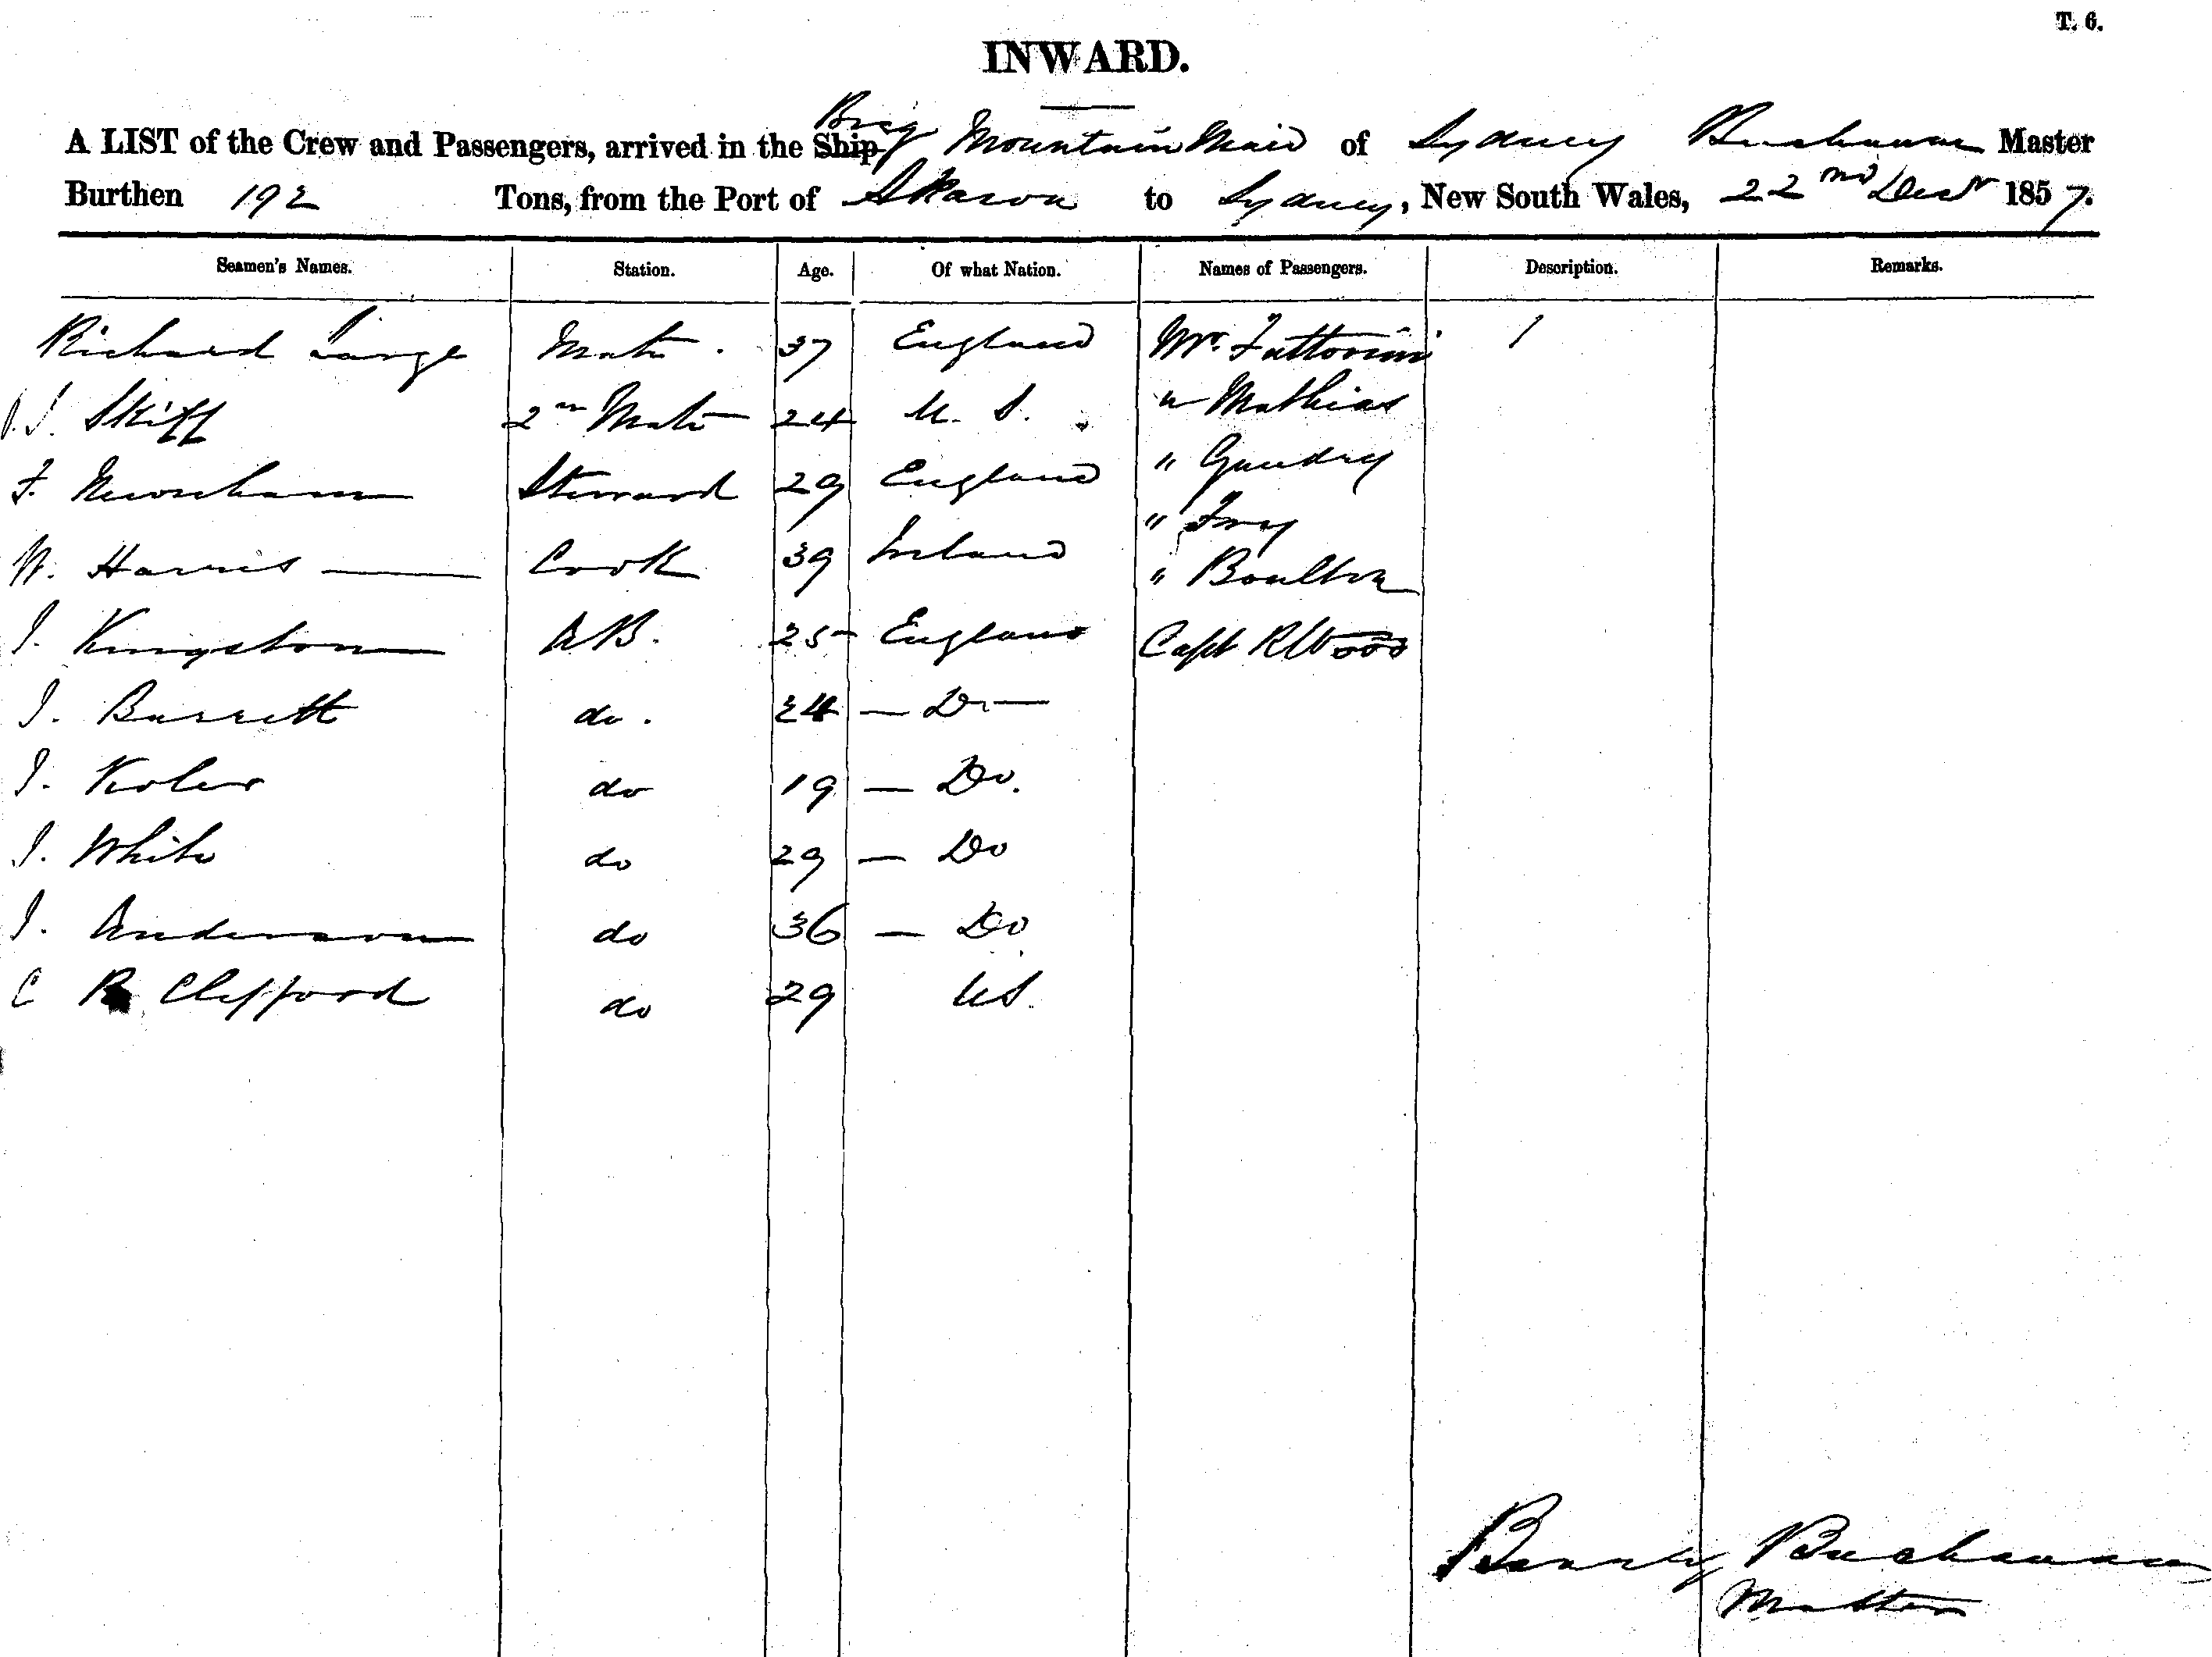 T. 6.
INWARD.
A LIST of the Crew and Passengers, arrived in the Ship Brig Mountain Maid of Sydney Buchanan Master
Burthen 192 Tons, from the Port of to Sydney, New South Wales, 22nd Decr 1857.
Seamen's Names. Station. Age. Of what Nation. Names of Passengers. Description. Remarks.
Richard Large Mate . 37 England Mr. Fattorini 1
J. Skiff 2nd Mate 24 U. S. " Mathias
F. Newsham Steward 29 England " Gaudry
" Fry
W. Harris Cook 39 Ireland " Boulton
J. Kingston AB. 25 England Capt R Wood
J. Barrett do. 24 — Do —
J. do 19 — Do.
J. White do 29 — Do
J. Anderson do 36 — Do
C R Clifford do 29 US.
Buchanan
Master